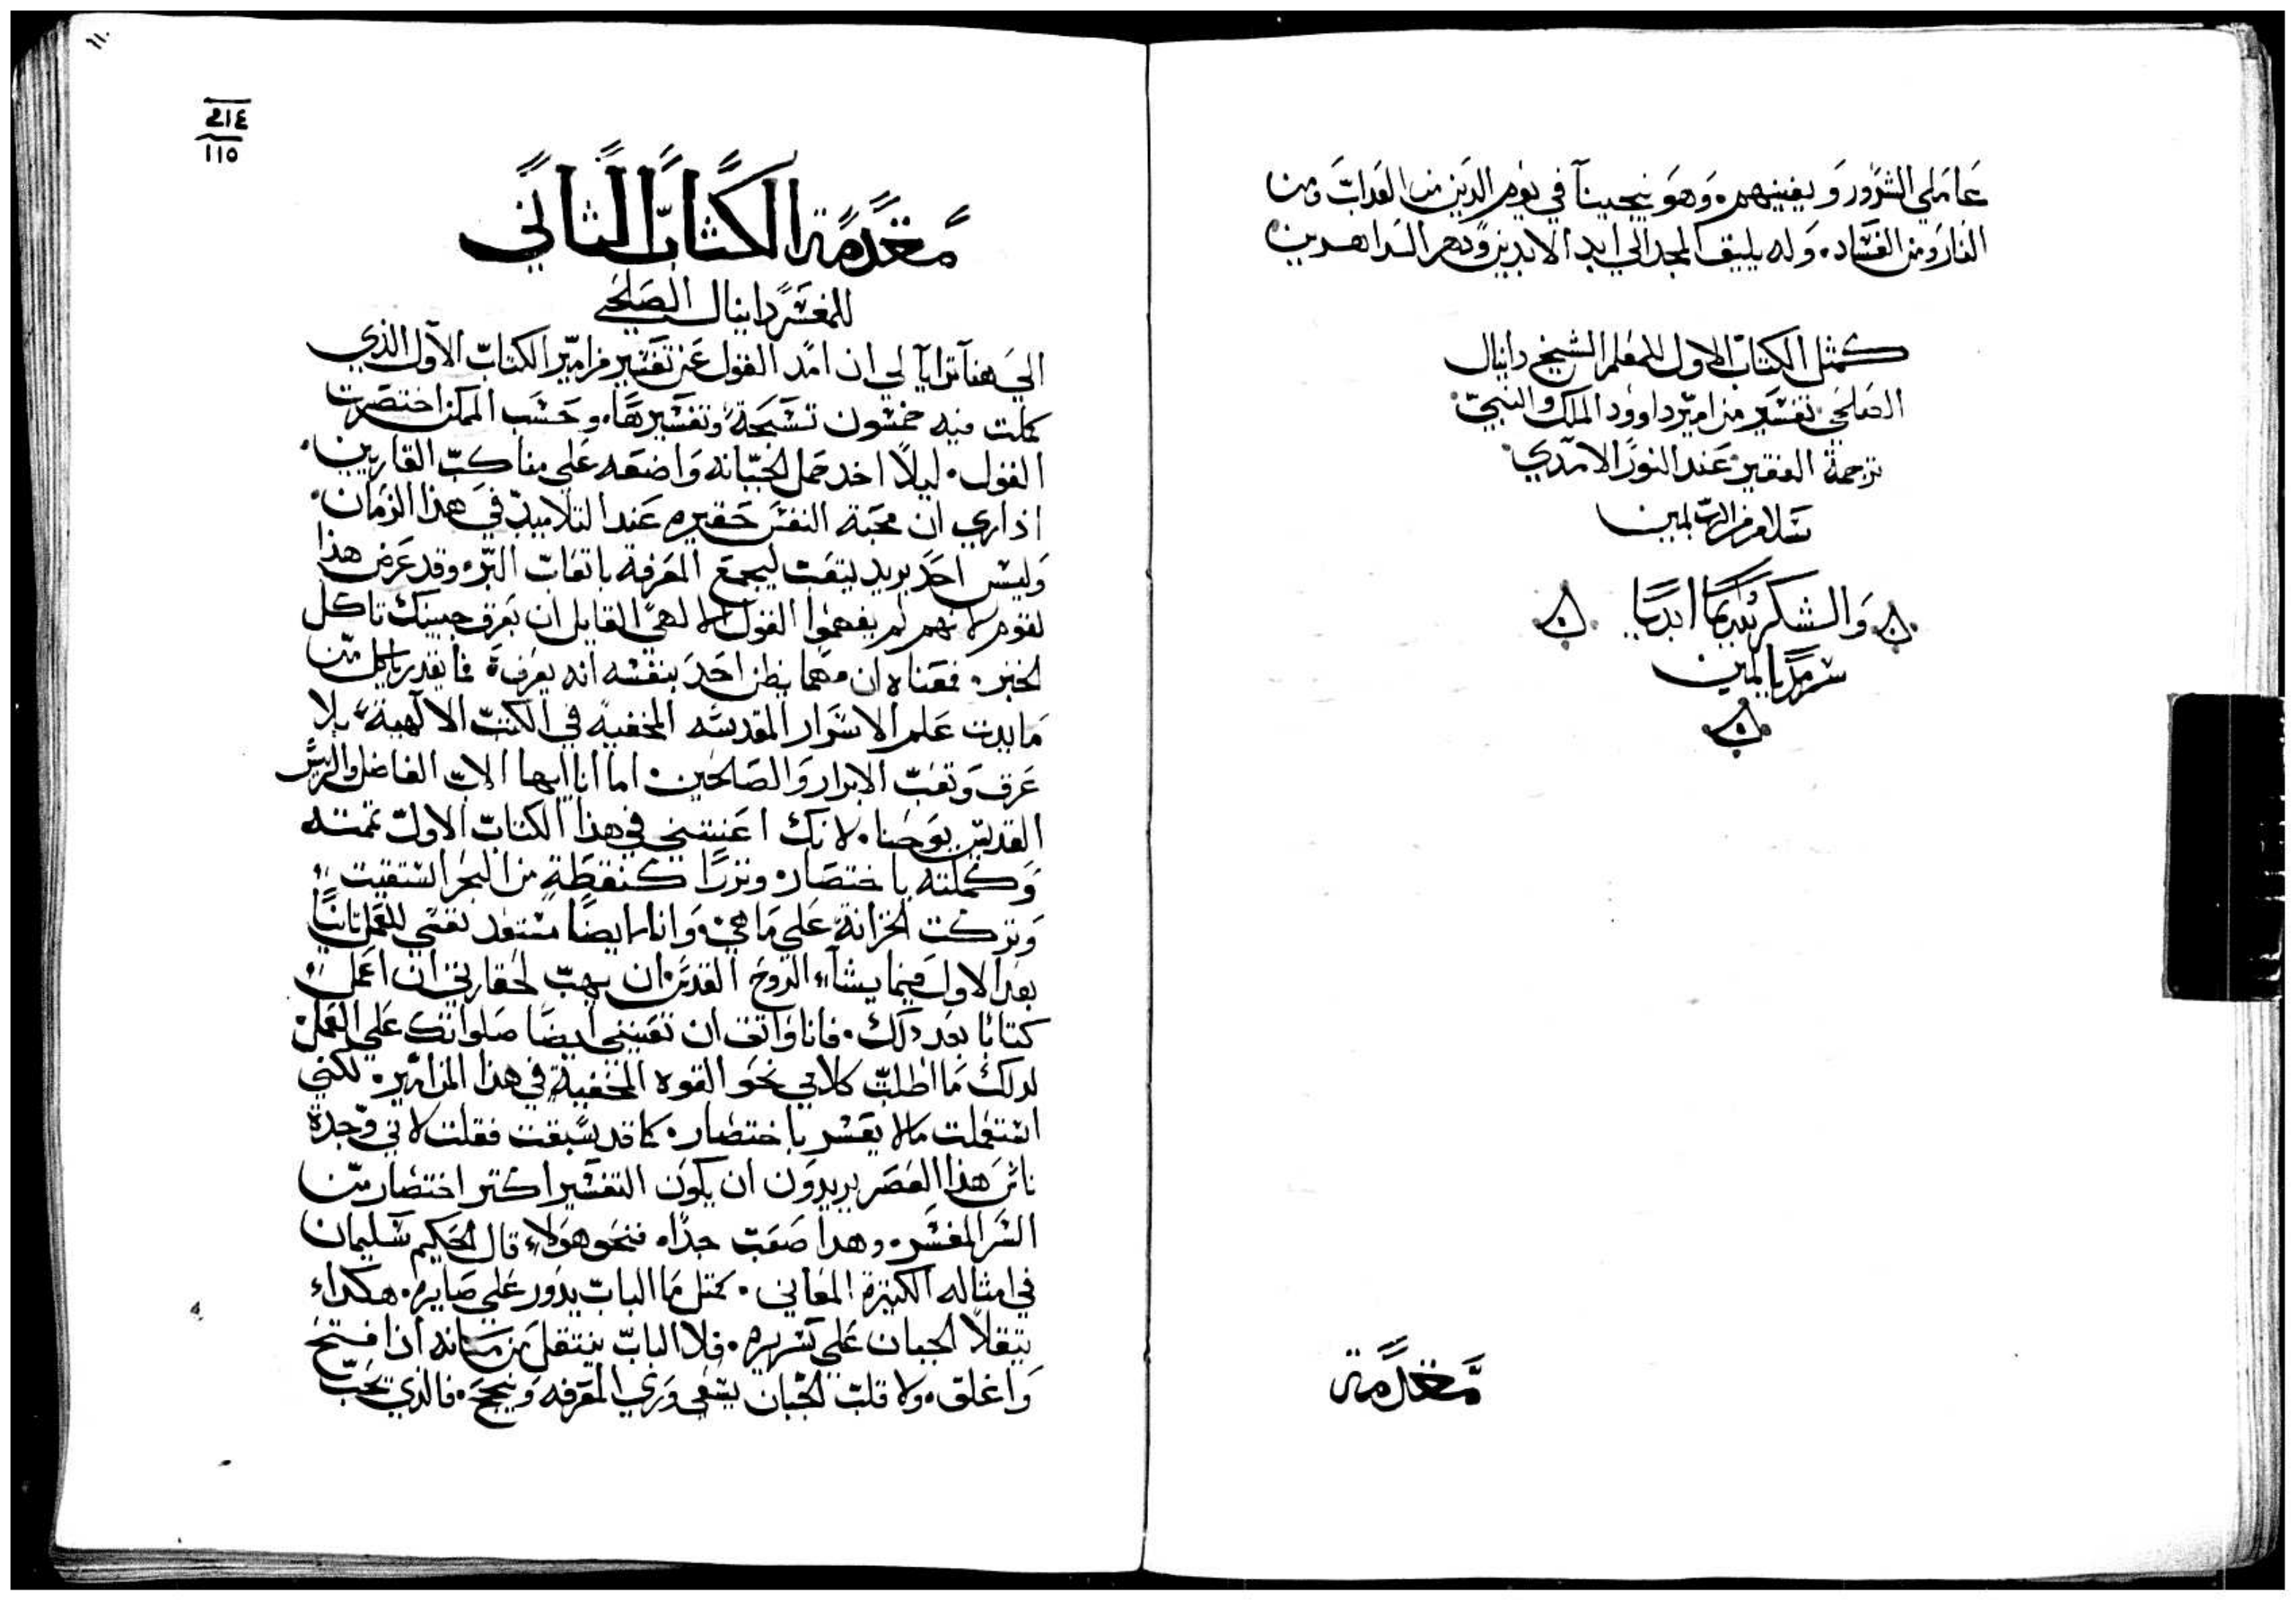 عاملي الشرور ويفينهم. وهو ينجينا في يوم الدين من العداب ومن
النار ومن الفساد. وله يليق المجد الي ابد الابدين ودهر الداهرين
كمل الكتاب الاول للمعلم الشيخ دانيال
الصلحي تفسير مزامير داوود الملك والنبي
ترجمة الفقير عبد النور الامدي
سلام من الرب امين
والشكر دايما ابديا
سرمديا امين
مقدمة
٢١٤
١١٥
مقدمة الكتاب الثاني
للمفسر دانيال الصلحي
الي هنا ترايا لي ان امد القول عن تفسير مزامير الكتاب الاول الذي
كملت فيه خمسون تسبحة وتفسيرها. وحسب الممكن اختصرت
القول. ليلا اخد حمل واضعه علي مناكب القاريين.
اذ اري ان محبة النفس حقيره عند التلاميد في هذا الزمان.
وليس احد يريد يتعب ليجمع المعرفة باتعاب البر. وقد عرض هذا
لقوم لانهم لم يفهموا القول الالهي القايل ان بعرق جبينك تاكل
الخبز. فمعناه ان مهما يظن احد بنفسه انه يعرفه فما يقدر ياكل من
مايدت علم الاسرار المقدسه المخفيه في الكتب الالهية بلا
عرق وتعب الابرار والصالحين. اما انا ايها الاب الفاضل والريس
القديس يوحنا. لانك اعنتني في هذا الكتاب الاول تممته
وكملته باختصار ونزرا كنقطة من البحر استقيت
وتركت الخزانة علي ما هي. وانا ايضا مستعد نفسي للعمل ثانيا
بعد الاول فيما يشاء الروح القدس ان يهب لحقارتي ان اعمل
كتابا بعد دلك. فانا واثق ان تعينني ايضا صلواتك علي العمل
لدلك ما اطلت كلامي نحو القوه المخفية في هذا المزامير. لكني
استعملت مالا يعسر باختصار. كما قد سبقت فقلت لاني وجدة
ناس هذا العصر يريدون ان يكون التفسير اكتر اختصار من
السر المفسر. وهدا صعب جدا. فنحو هولاء قال الحكيم سليمان
في امثاله الكثيرة المعاني. كمتل ما الباب يدور علي صايره. هكدا
يتقلا الجبان علي سريره. فلا الباب ينتقل من مكانه اذا فتح
واغلق. ولا قلب الجبان يسعي وري المعرفه وينجح. فالذي يحب